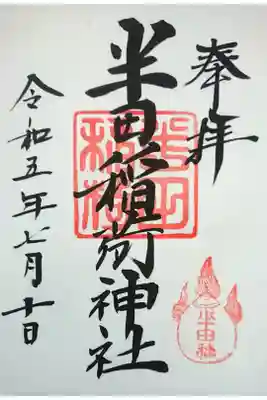 奉拝
半田稲荷神社
令和五年七月十日
半田稲荷
半田社